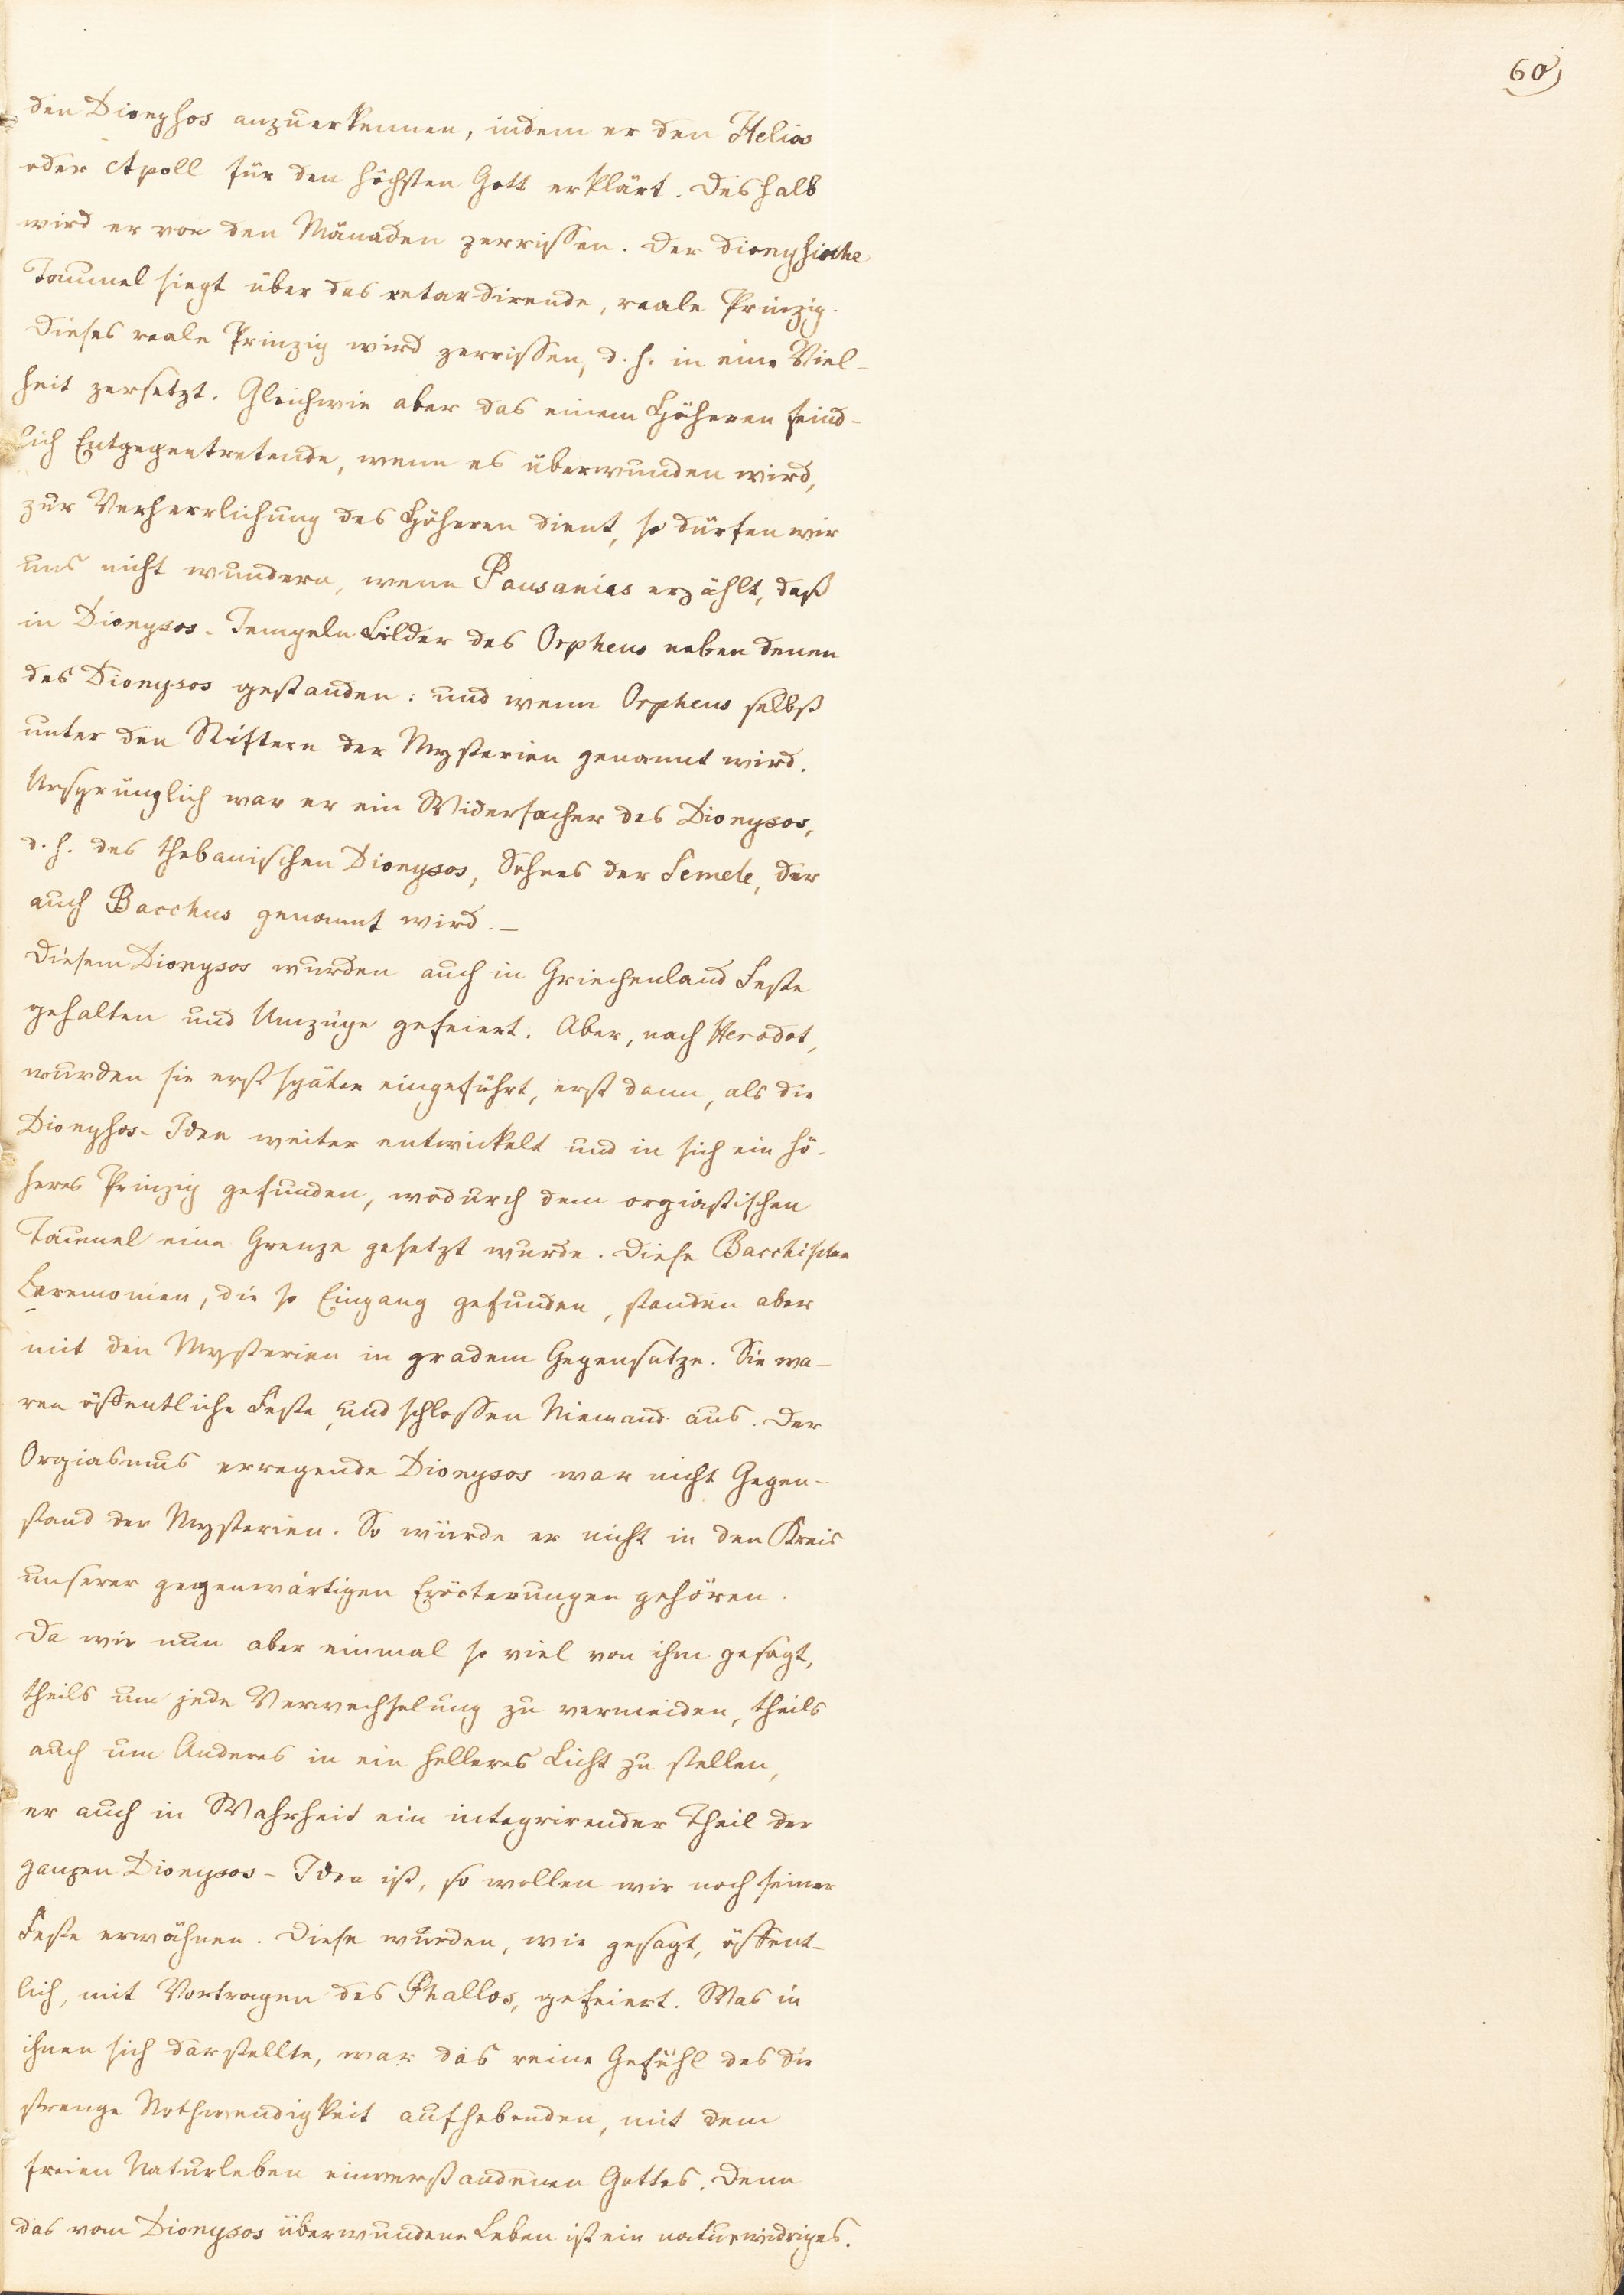 60)
den Dionysos anzuerkennen, indem er den Helios
oder Apoll für den höchsten Gott erklärt. Deshalb
wird er von den Mänaden zerrissen. Der dionysische
Taumel siegt über das retardirende, reale Prinzip.
Dieses reale Prinzip wird zerrissen, d. h. in eine Viel-
heit zersetzt. Gleichwie aber das einem Höheren feind-
lich Entgegentretende, wenn es überwunden wird,
zur Verherrlichung des Höheren dient, so dürfen wir
uns nicht wundern, wenn Pausanias erzählt, daß
in Dionysos-Tempeln Bilder des Orpheus neben denen
des Dionysos gestanden: und wenn Orpheus selbst
unter den Stiftern der Mysterien genannt wird.
Ursprünglich war er ein Widersacher des Dionysos,
d. h. des thebanischen Dionysos, Sohnes der Semele, der
auch Bacchus genannt wird. –
Diesem Dionysos wurden auch in Griechenland Feste
gehalten und Umzüge gefeiert. Aber, nach Herodot,
wurden sie erst später eingeführt, erst dann, als die
Dionysos-Idee weiter entwickelt und in sich ein hö-
heres Prinzip gefunden, wodurch dem orgiastischen
Taumel eine Grenze gesetzt wurde. Diese Bacchischen
Ceremonien, die so Eingang gefunden, standen aber
mit den Mysterien in gradem Gegensatze. Sie wa-
ren öffentliche Feste, und schlossen Niemand aus. Der
Orgiasmus erregende Dionysos war nicht Gegen-
stand der Mysterien. So würde er nicht in den Kreis
unserer gegenwärtigen Erörterungen gehören.
Da wir nun aber einmal so viel von ihm gesagt,
theils um jede Verwechselung zu vermeiden, theils
auch um Anderes in ein helleres Licht zu stellen,
er auch in Wahrheit ein integrirender Theil der
ganzen Dionysos-Idee ist, so wollen wir noch seiner
Feste erwähnen. Diese wurden, wie gesagt, öffent-
lich, mit Vortragen des Phallos, gefeiert. Was in
ihnen sich darstellte, war das reine Gefühl des die
strenge Nothwendigkeit aufhebenden, mit dem
freien Naturleben einverstandenen Gottes. Denn
das vom Dionysos überwundene Leben ist ein naturwidriges.